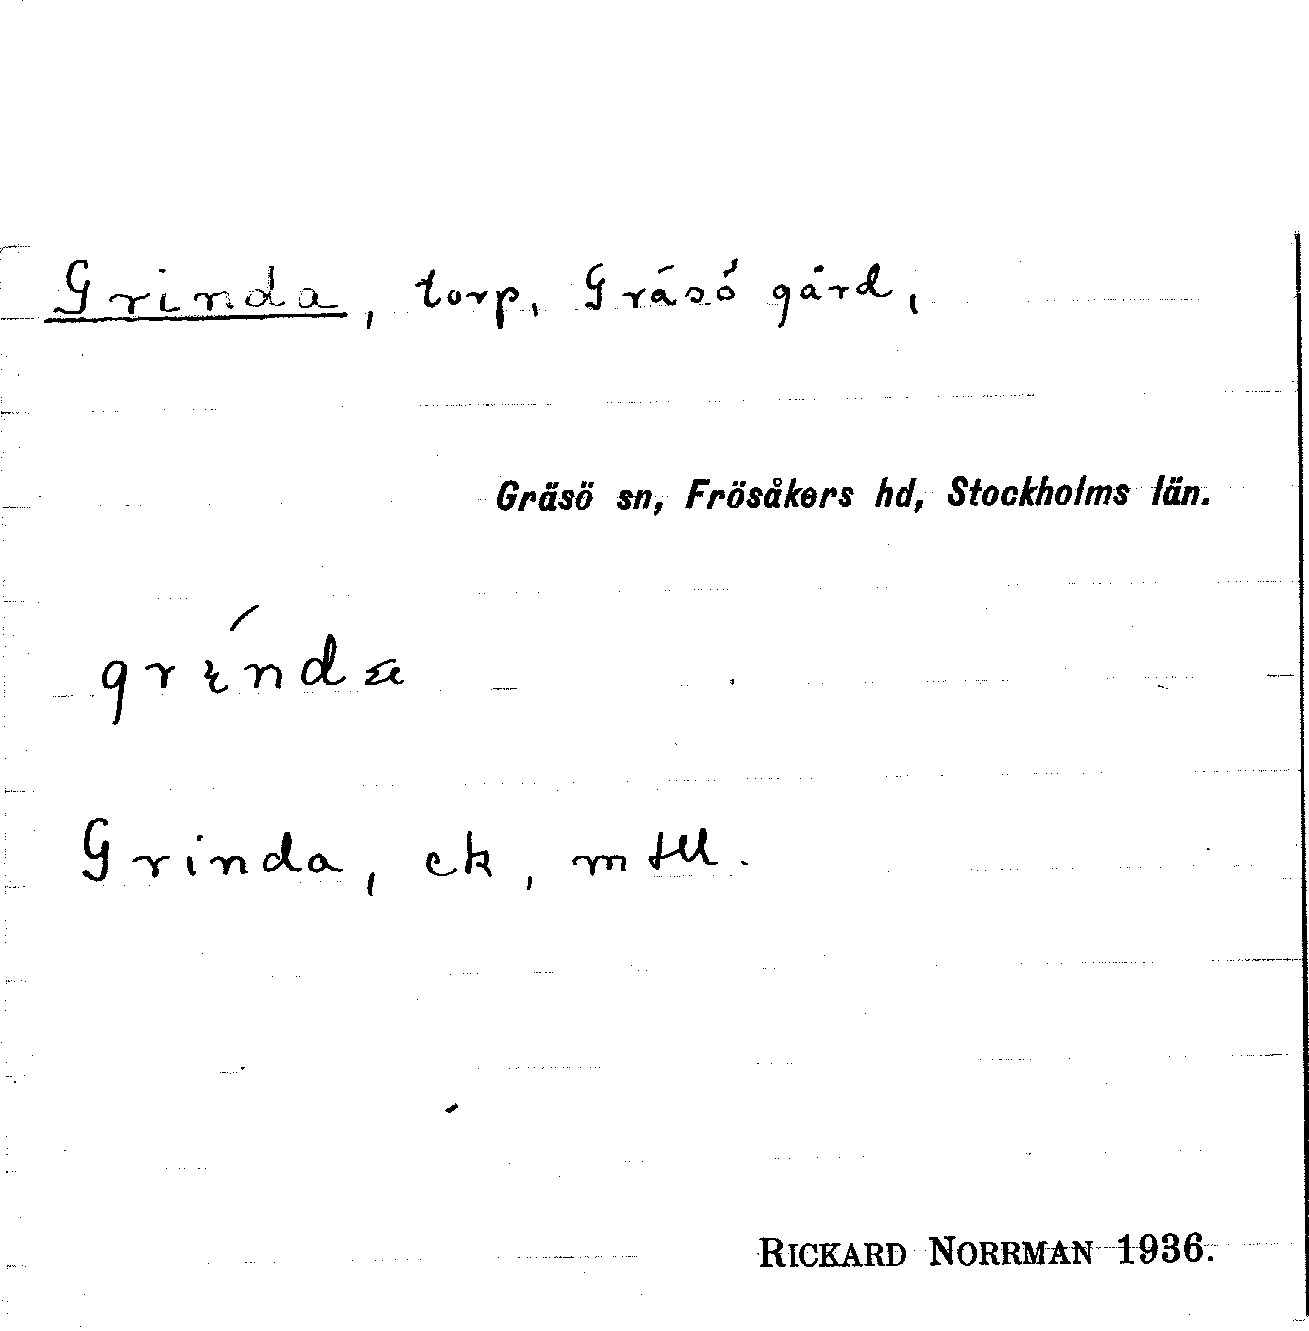 Grinda, torp, Gräsö gård,
Gräsö sn, Frösåkers hd, Stockholms län.
grinda
Grinda, ek, mtll.
RICKARD NORRMAN 1936.